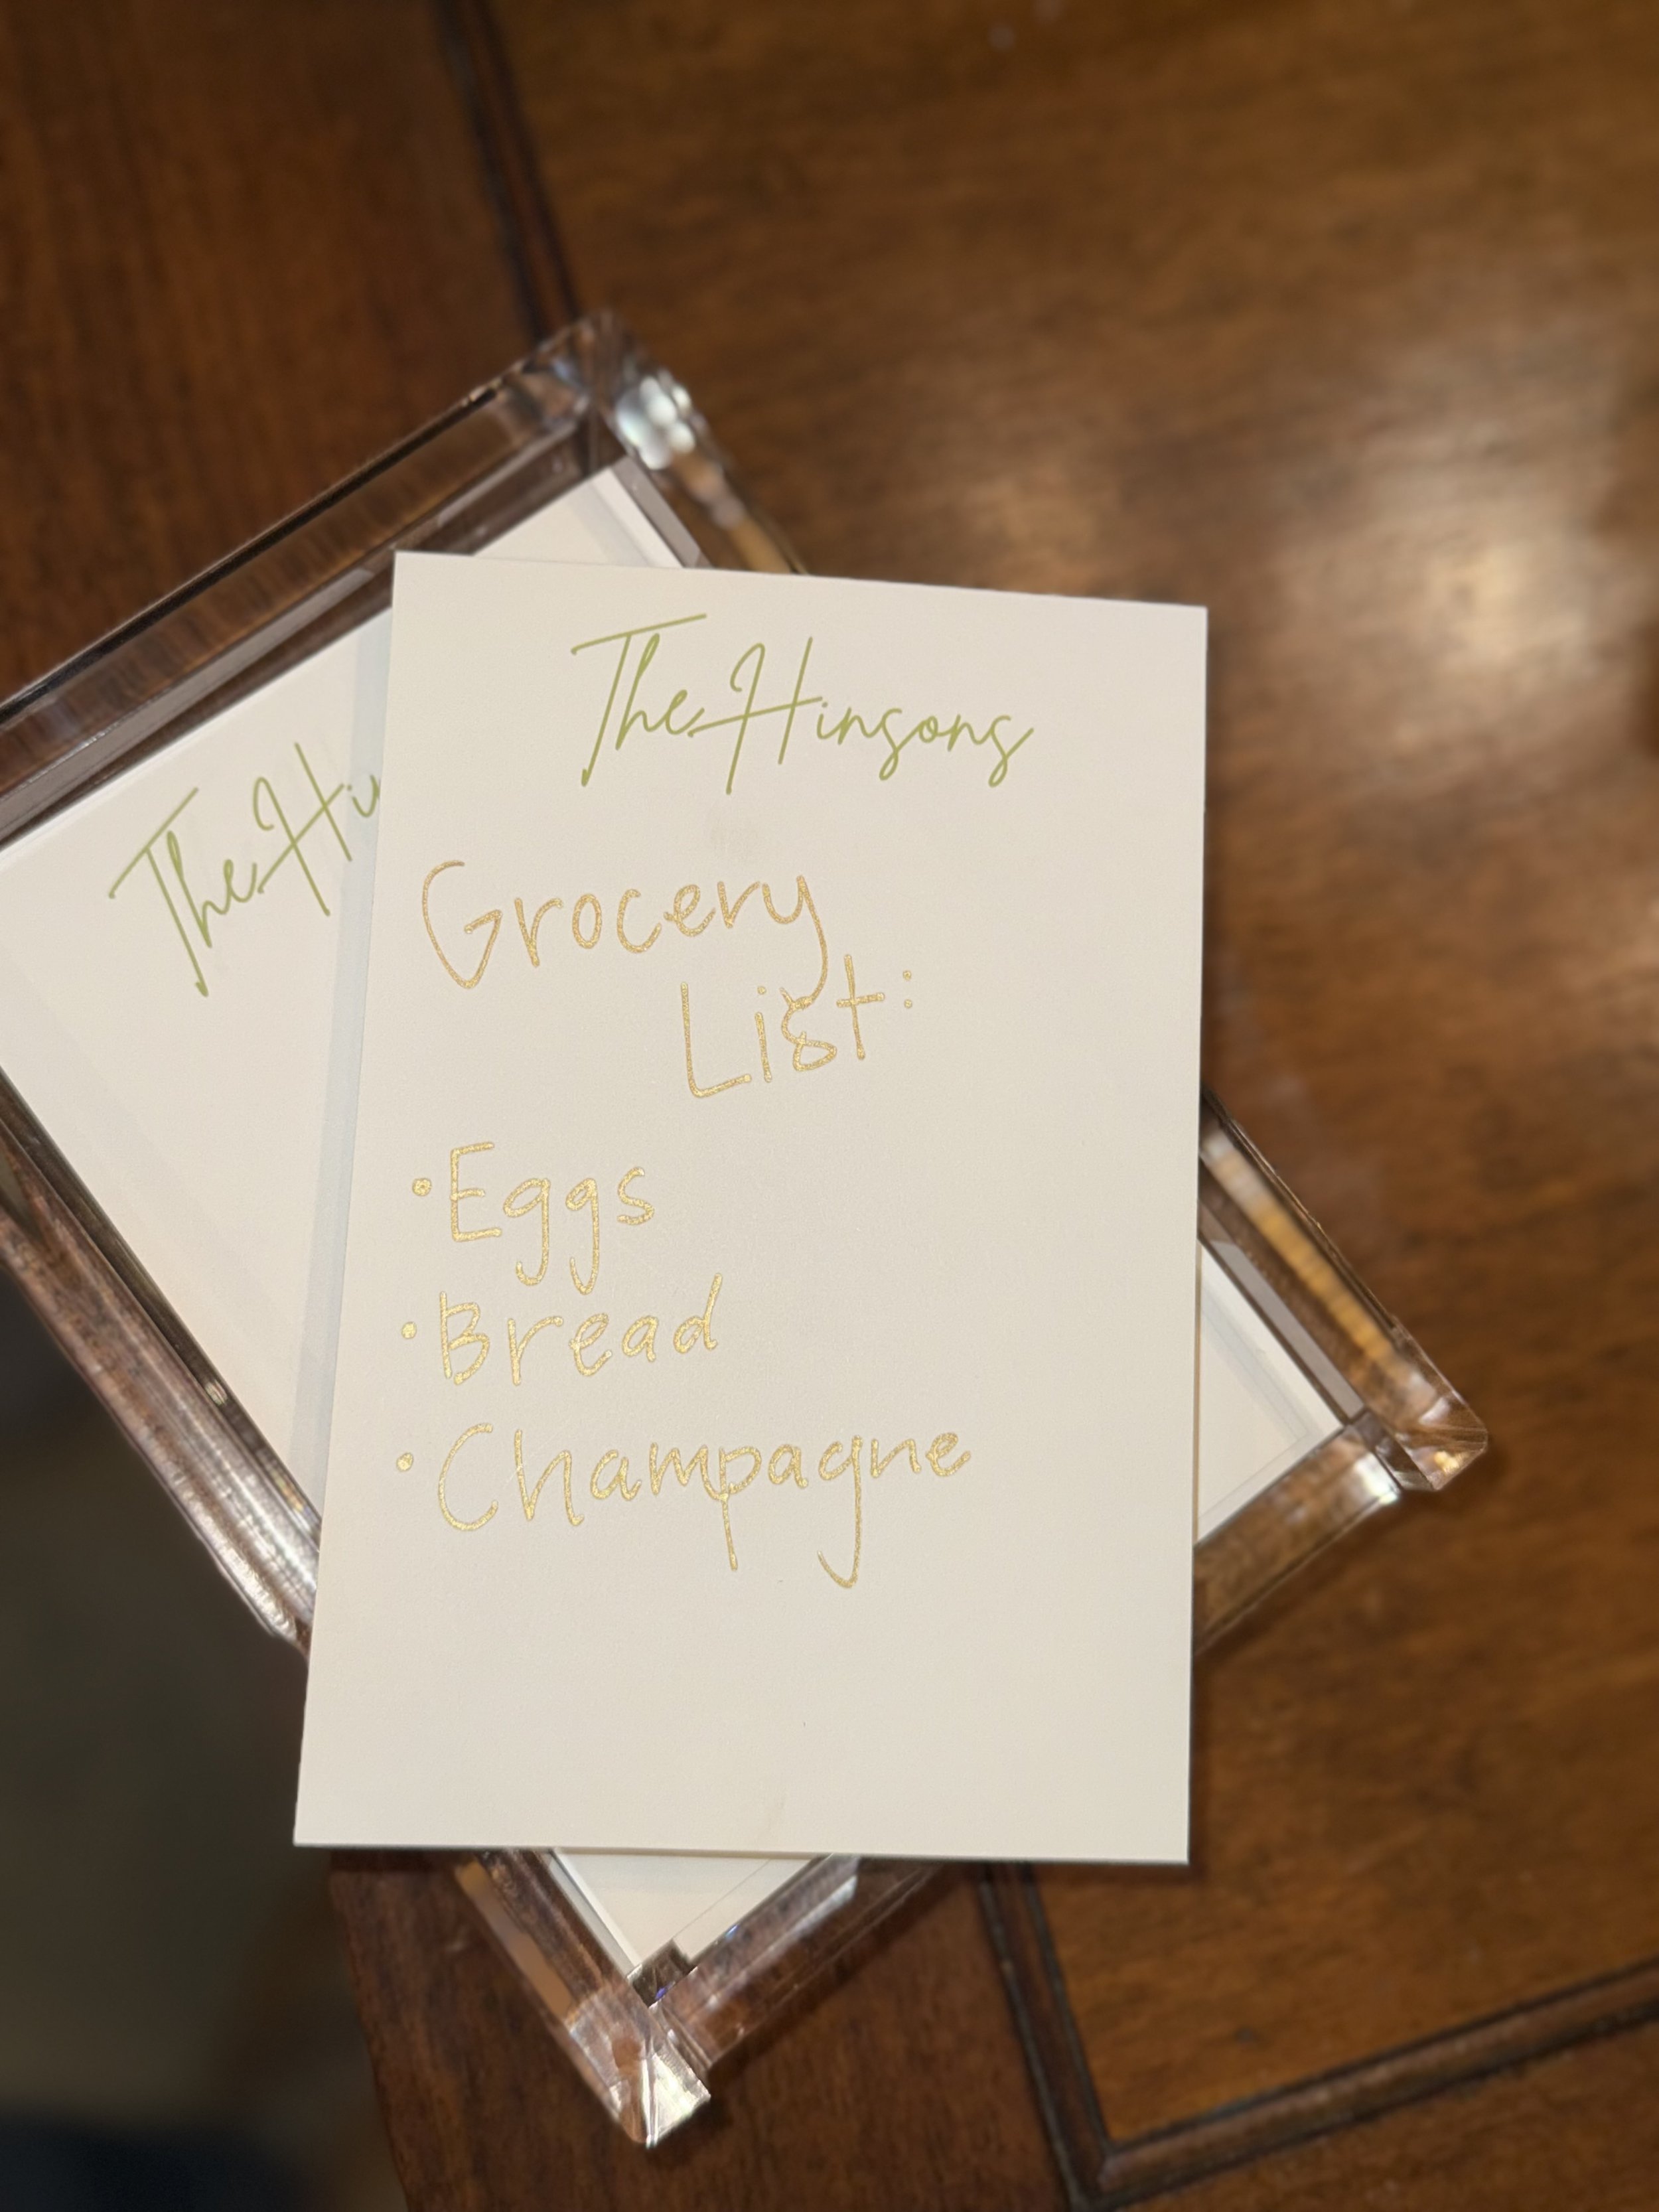 The Hinsons
Grocery
List:
• Eggs
• Bread
• Champagne
The Hin